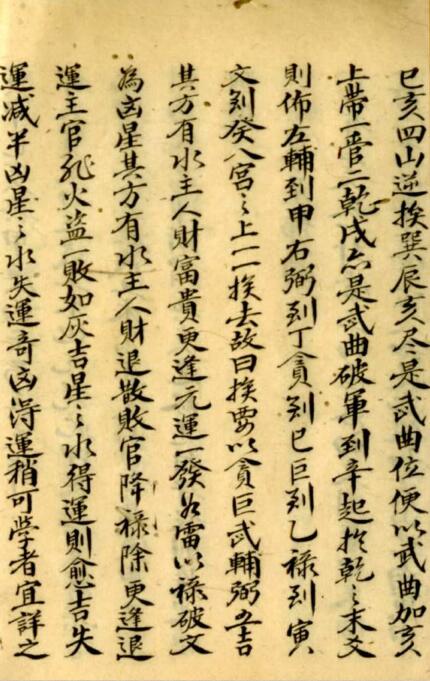 巳亥四山逆挨巽辰亥尽是武曲位便以武曲加亥
上帶一管二乾戌亦是武曲破軍到辛起於乾之末爻
則佈左輔到申右弼到丁貪到巳巨到乙祿到寅
文到癸八宮之上一一挨去故曰挨要以貪巨武輔弼五吉
其方有水主人財富貴更逢元運一發如雷以祿破文
為凶星其方有水主人財退散敗官降祿除更逢退
運主官非火盜一敗如灰吉星之水得運則愈吉失
運减半凶星之水失運奇凶得運稍可學者宜詳之